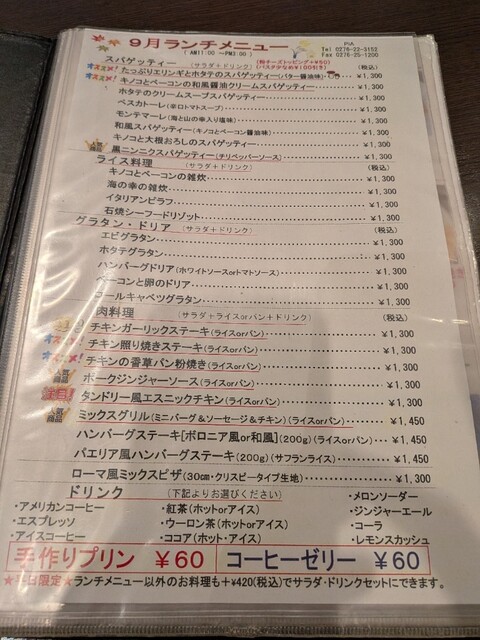 9月ランチメニュー
( AM11:00 ～PM3:00 )
PIA
Tel 0276-22-3152
Fax 0276-25-1200
スパゲッティー (サラダ+ドリンク) (粉チーズトッピング+¥50) (パスタ少なめ¥100引き) (税込)
オススメ! たっぷりエリンギとホタテのスパゲッティー(バター醤油味) ¥1,300
オススメ! キノコとベーコンの和風醤油クリームスパゲッティー ¥1,300
ホタテのクリームスープスパゲッティー ¥1,300
ペスカトーレ(辛口トマトスープ) ¥1,300
モンテマーレ(海と山の幸入り塩味) ¥1,300
和風スパゲッティー(キノコとベーコン醤油味) ¥1,300
キノコと大根おろしのスパゲッティー ¥1,300
黒ニンニクスパゲッティー(チリペッパーソース) ¥1,300
ライス料理 (サラダ+ドリンク) (税込)
キノコとベーコンの雑炊 ¥1,300
海の幸の雑炊 ¥1,300
イタリアンピラフ ¥1,300
石焼シーフードリゾット ¥1,300
グラタン・ドリア (サラダ+ドリンク) (税込)
エビグラタン ¥1,300
ホタテグラタン ¥1,300
ハンバーグドリア(ホワイトソースorトマトソース) ¥1,300
ベーコンと卵のドリア ¥1,300
ロールキャベツグラタン ¥1,300
肉料理 (サラダ+ライスorパン+ドリンク) (税込)
チキンガーリックステーキ(ライスorパン) ¥1,300
オススメ! チキン照り焼きステーキ(ライスorパン) ¥1,300
オススメ! チキンの香草パン粉焼き(ライスorパン) ¥1,300
人気商品 ポークジンジャーソース(ライスorパン) ¥1,300
注目! タンドリー風エスニックチキン(ライスorパン) ¥1,300
人気商品 ミックスグリル(ミニバーグ&ソーセージ&チキン)(ライスorパン) ¥1,450
ハンバーグステーキ[ボロニア風or和風](200g)(ライスorパン) ¥1,450
パエリア風ハンバーグステーキ(200g)(サフランライス) ¥1,450
ローマ風ミックスピザ(30cm・クリスピータイプ生地) ¥1,300
ドリンク (下記よりお選びください)
・アメリカンコーヒー ・紅茶(ホットorアイス) ・メロンソーダー
・エスプレッソ ・ウーロン茶(ホットorアイス) ・ジンジャーエール
・アイスコーヒー ・ココア(ホット・アイス) ・コーラ
・レモンスカッシュ
手作りプリン ¥60 コーヒーゼリー ¥60
★平日限定★ランチメニュー以外のお料理も+¥420(税込)でサラダ・ドリンクセットにできます。